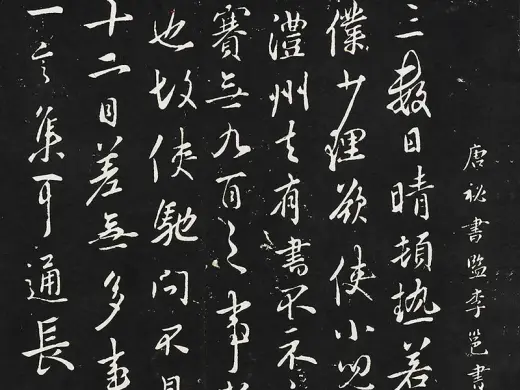 唐祕書監李邕書
三數日晴頓熱若
僕少理欲使小兒
澧州去有書不示
賽無九百之事
也故使馳問不具
十二日差無多事
一言集可通長